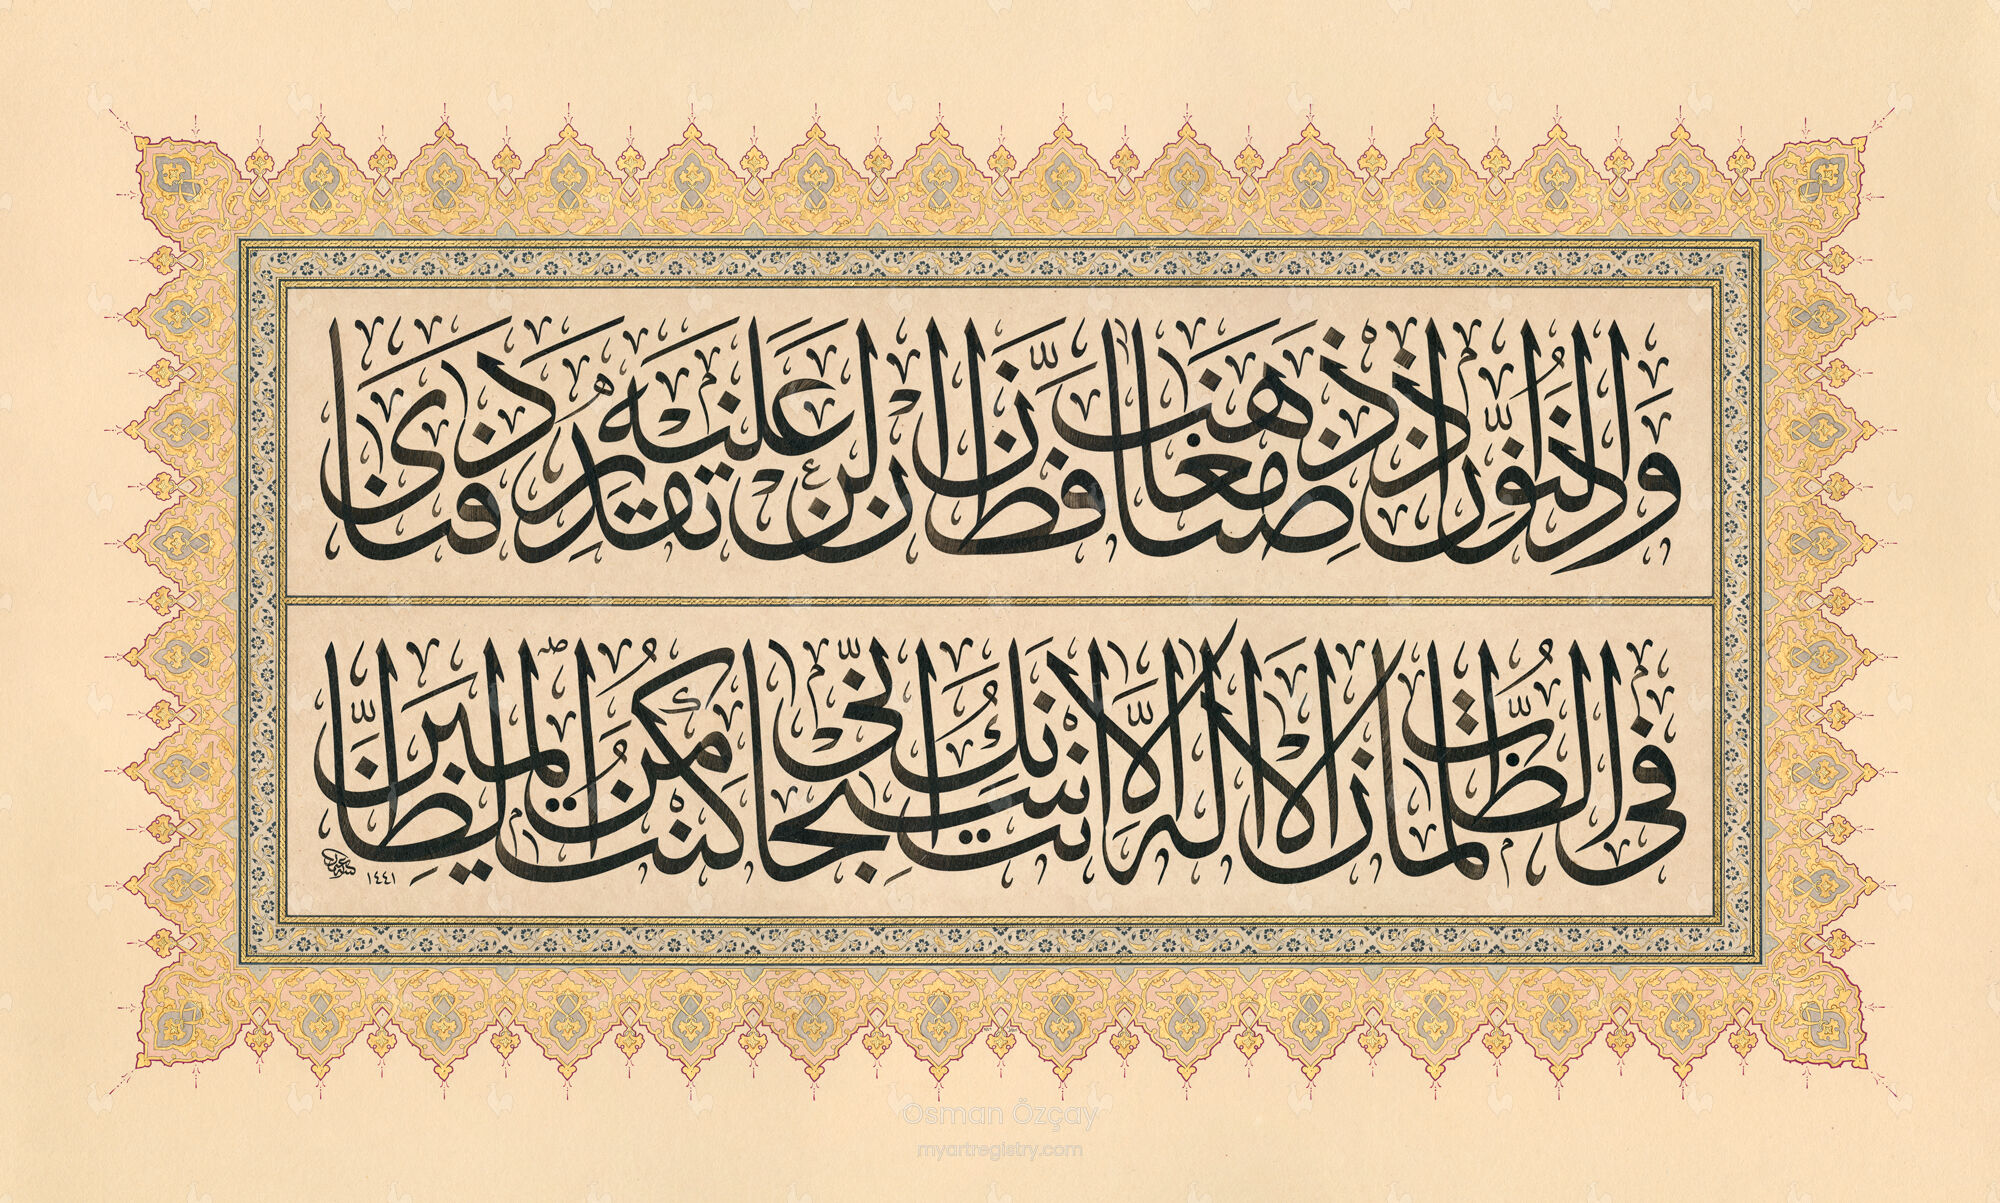 وَذَا النُّونِ إِذْ ذَهَبَ مُغَاضِبًا فَظَنَّ أَنْ لَنْ نَقْدِرَ عَلَيْهِ فَنَادَى
فِي الظُّلُمَاتِ أَنْ لَا إِلَهَ إِلَّا أَنْتَ سُبْحَانَكَ إِنِّي كُنْتُ مِنَ الظَّالِمِينَ
١٤٤١
Osman Özçay
myartregistry.com